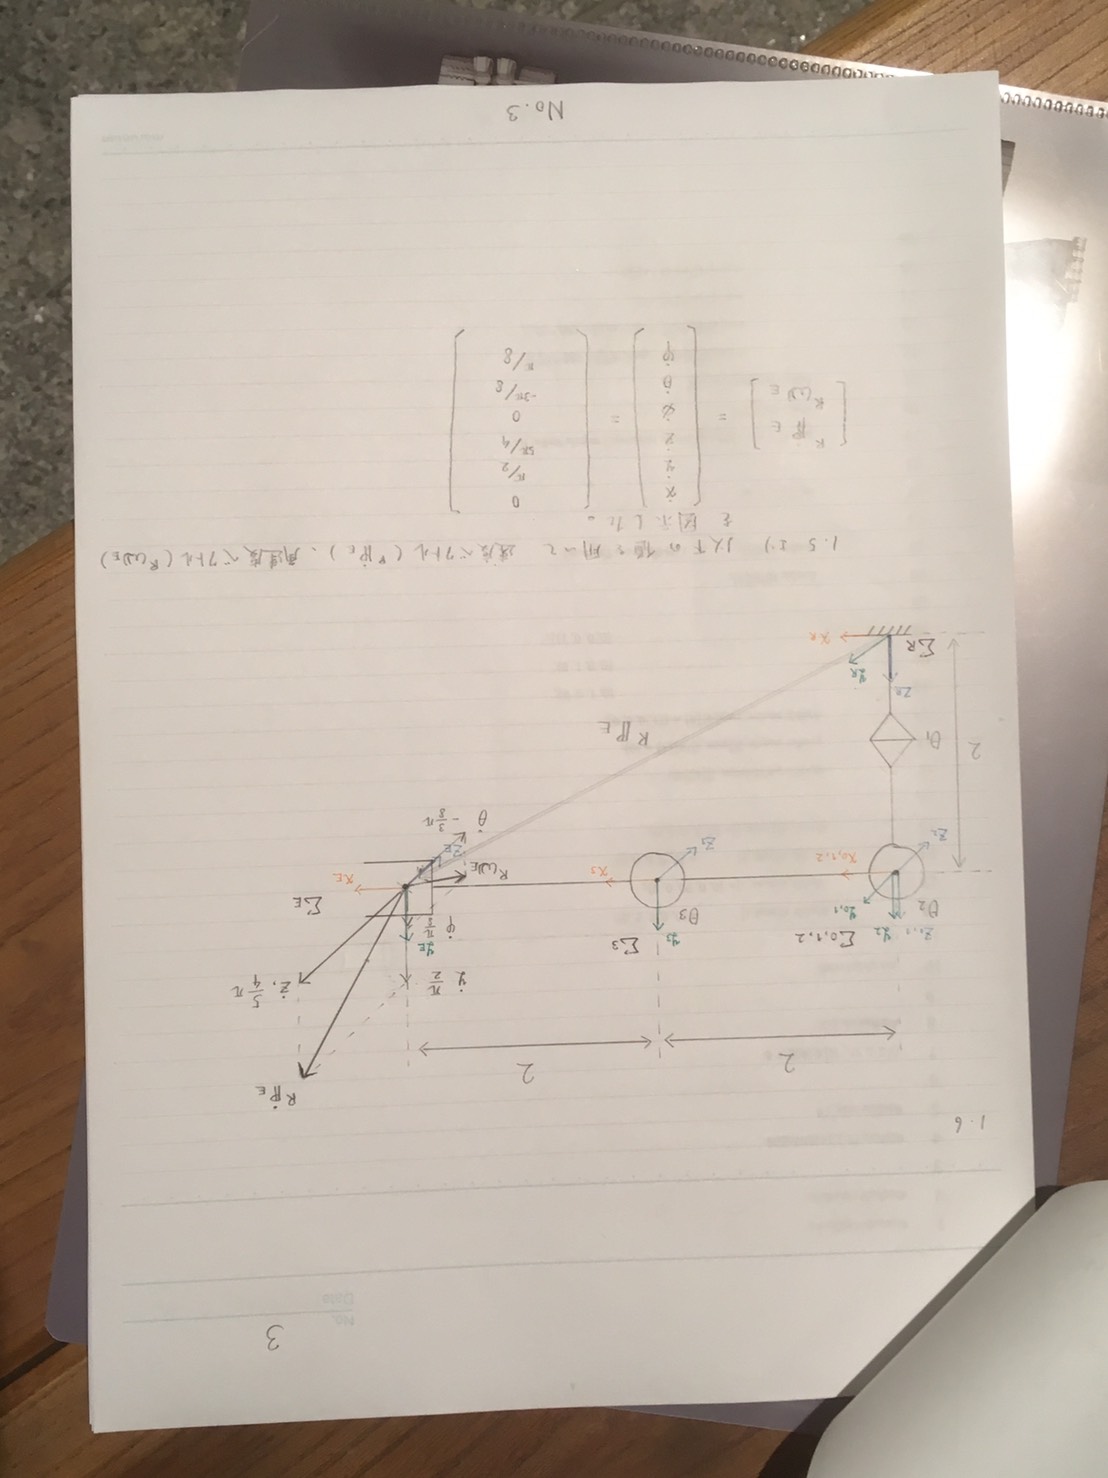 No. 3
Date
1.6
2 2
R ṗ E
ẏ π/2 ż, 5/4 π
z0,1 y2 Σ0,1,2 y3 Σ3 yE
θ2 y0,1 θ3 φ̇ π/8 ΣE
x0,1,2 x3 RωE xE
z2 z3 zE
θ̇ -3/8 π
2 θ1 R p E
zR yR
ΣR xR
1.5 より 以下の値を用いて 速度ベクトル(R ṗ E)、角速度ベクトル(R ω E)
を図示した。
[R ṗ E, R ω E] = [ẋ, ẏ, ż, ψ̇, θ̇, φ̇] = [0, π/2, 5π/4, 0, -3π/8, π/8]
No.3